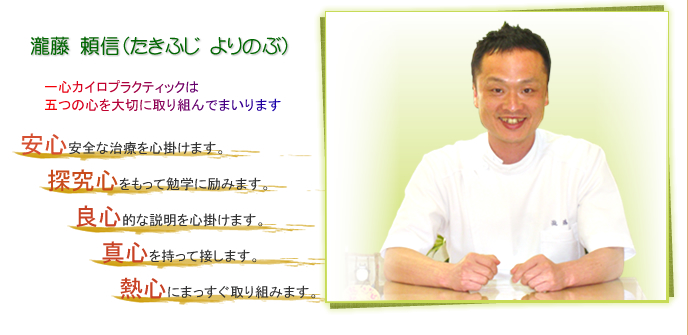 瀧藤 頼信(たきふじ よりのぶ)
一心カイロプラクティックは
五つの心を大切に取り組んでまいります
安心安全な治療を心掛けます。
探究心をもって勉学に励みます。
良心的な説明を心掛けます。
真心を持って接します。
熱心にまっすぐ取り組みます。